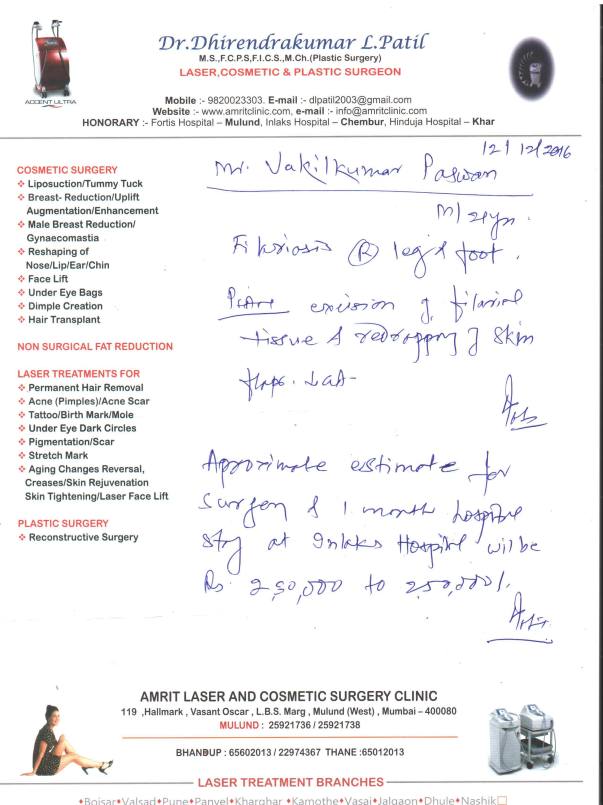 Dr.Dhirendrakumar L.Patil
M.S.,F.C.P.S,F.I.C.S.,M.Ch.(Plastic Surgery)
LASER,COSMETIC & PLASTIC SURGEON
ACCENT ULTRA
Mobile :- 9820023303. E-mail :- dlpatil2003@gmail.com
Website :- www.amritclinic.com, e-mail :- info@amritclinic.com
HONORARY :- Fortis Hospital – Mulund, Inlaks Hospital – Chembur, Hinduja Hospital – Khar
12/12/2016
Mr. Vakilkumar Paswan
M/
Filariasis (R) leg & foot.
excision of filarial
tissue & redrapping of skin
flaps.
Aproximate estimate for
surgery & 1 month hospital
stay at Inlaks Hospital will be
Rs. to 250,000/.
COSMETIC SURGERY
❖ Liposuction/Tummy Tuck
❖ Breast- Reduction/Uplift
Augmentation/Enhancement
❖ Male Breast Reduction/
Gynaecomastia
❖ Reshaping of
Nose/Lip/Ear/Chin
❖ Face Lift
❖ Under Eye Bags
❖ Dimple Creation
❖ Hair Transplant
NON SURGICAL FAT REDUCTION
LASER TREATMENTS FOR
❖ Permanent Hair Removal
❖ Acne (Pimples)/Acne Scar
❖ Tattoo/Birth Mark/Mole
❖ Under Eye Dark Circles
❖ Pigmentation/Scar
❖ Stretch Mark
❖ Aging Changes Reversal,
Creases/Skin Rejuvenation
Skin Tightening/Laser Face Lift
PLASTIC SURGERY
❖ Reconstructive Surgery
AMRIT LASER AND COSMETIC SURGERY CLINIC
119 ,Hallmark , Vasant Oscar , L.B.S. Marg , Mulund (West) , Mumbai – 400080
MULUND : 25921736 / 25921738
BHANDUP : 65602013 / 22974367 THANE :65012013
LASER TREATMENT BRANCHES
♦Boisar♦Valsad♦Pune♦Panvel♦Kharghar ♦Kamothe♦Vasai♦Jalgaon♦Dhule♦Nashik□